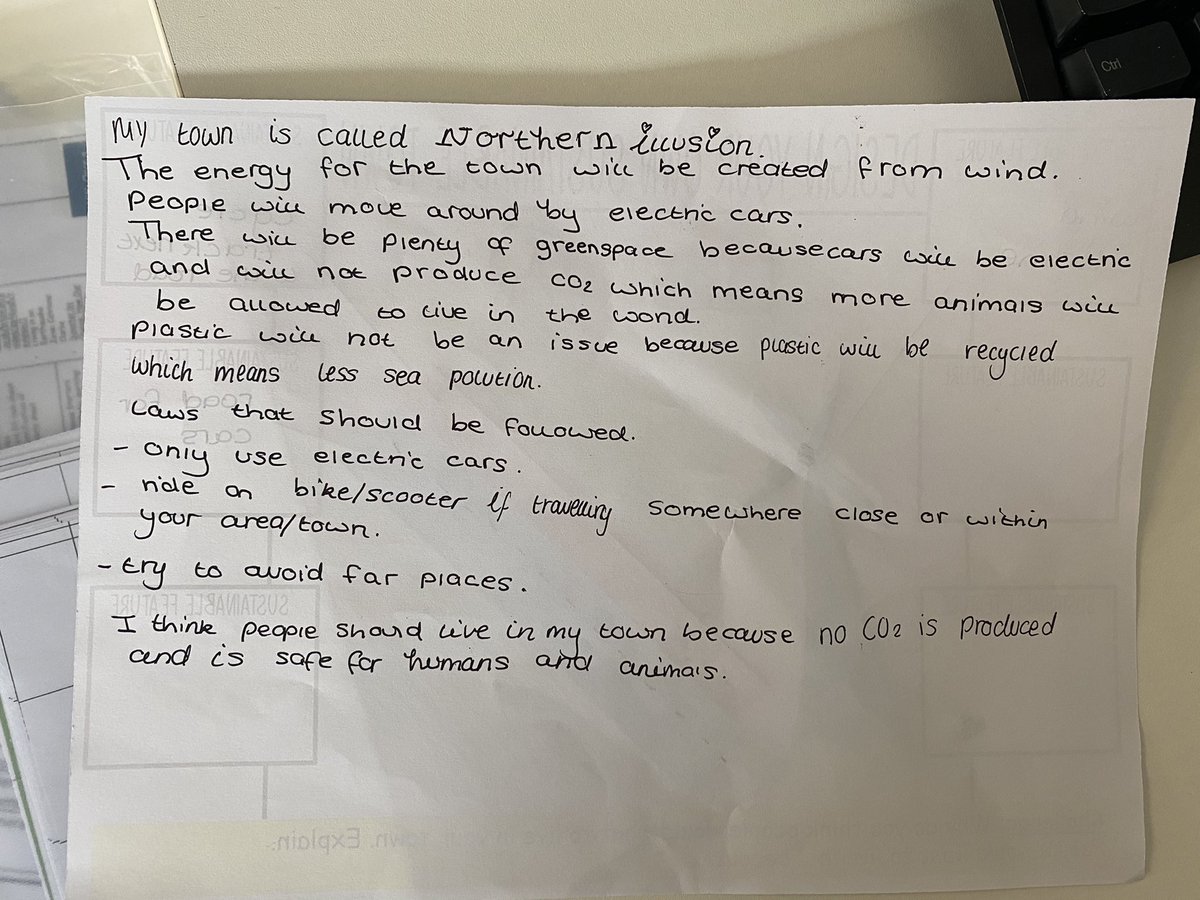 My town is called Northern illusion.
The energy for the town will be created from wind.
People will move around by electric cars.
There will be plenty of greenspace because cars will be electric
and will not produce CO2 which means more animals will
be allowed to live in the world.
Plastic will not be an issue because plastic will be recycled
which means less sea polution.
Laws that should be followed.
- only use electric cars.
- ride on bike/scooter if travelling somewhere close or within
your area/town.
- try to avoid far places.
I think people should live in my town because no CO2 is produced
and is safe for humans and animals.
SUSTAINABLE FEATURE
road for
cars
SUSTAINABLE FEATURE
town. Explain.
Ctrl